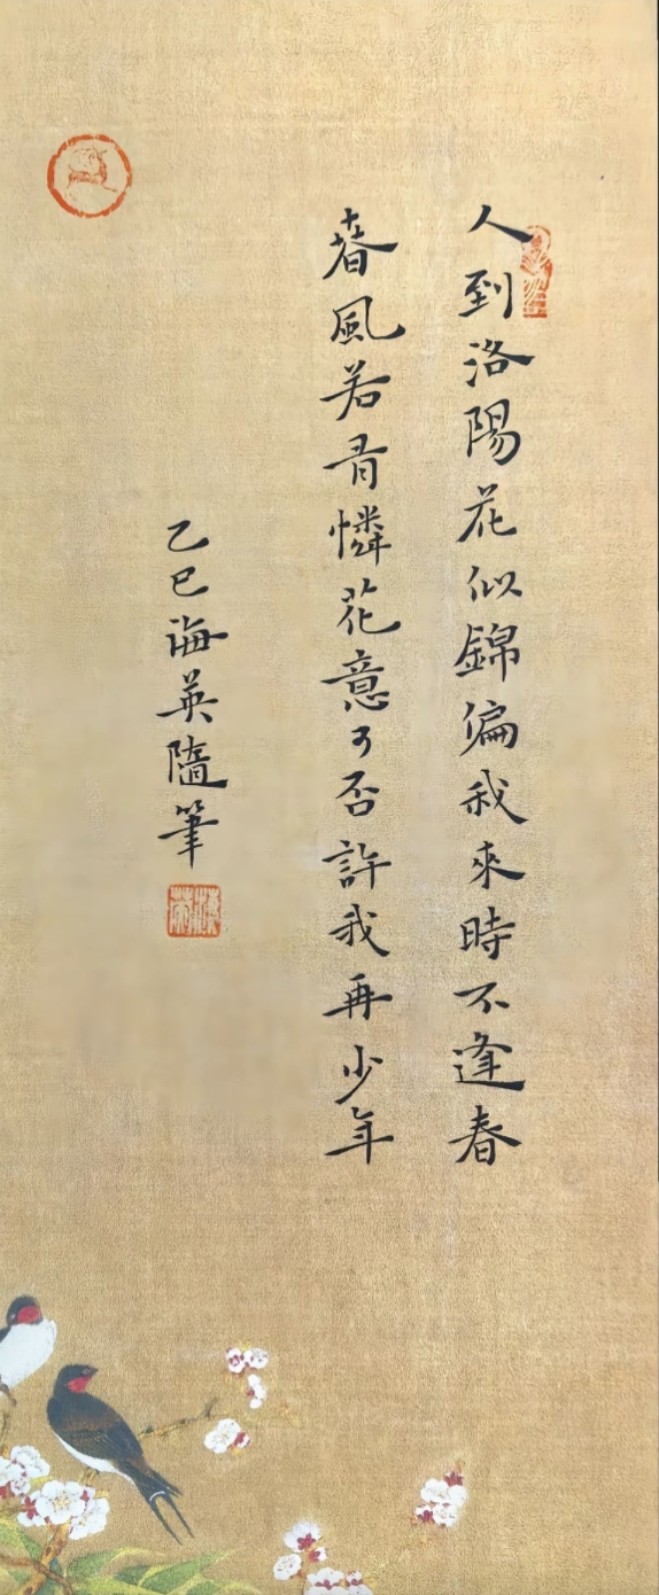 人到洛陽花似錦偏我來時不逢春
春風若有憐花意可否許我再少年
乙巳海英隨筆